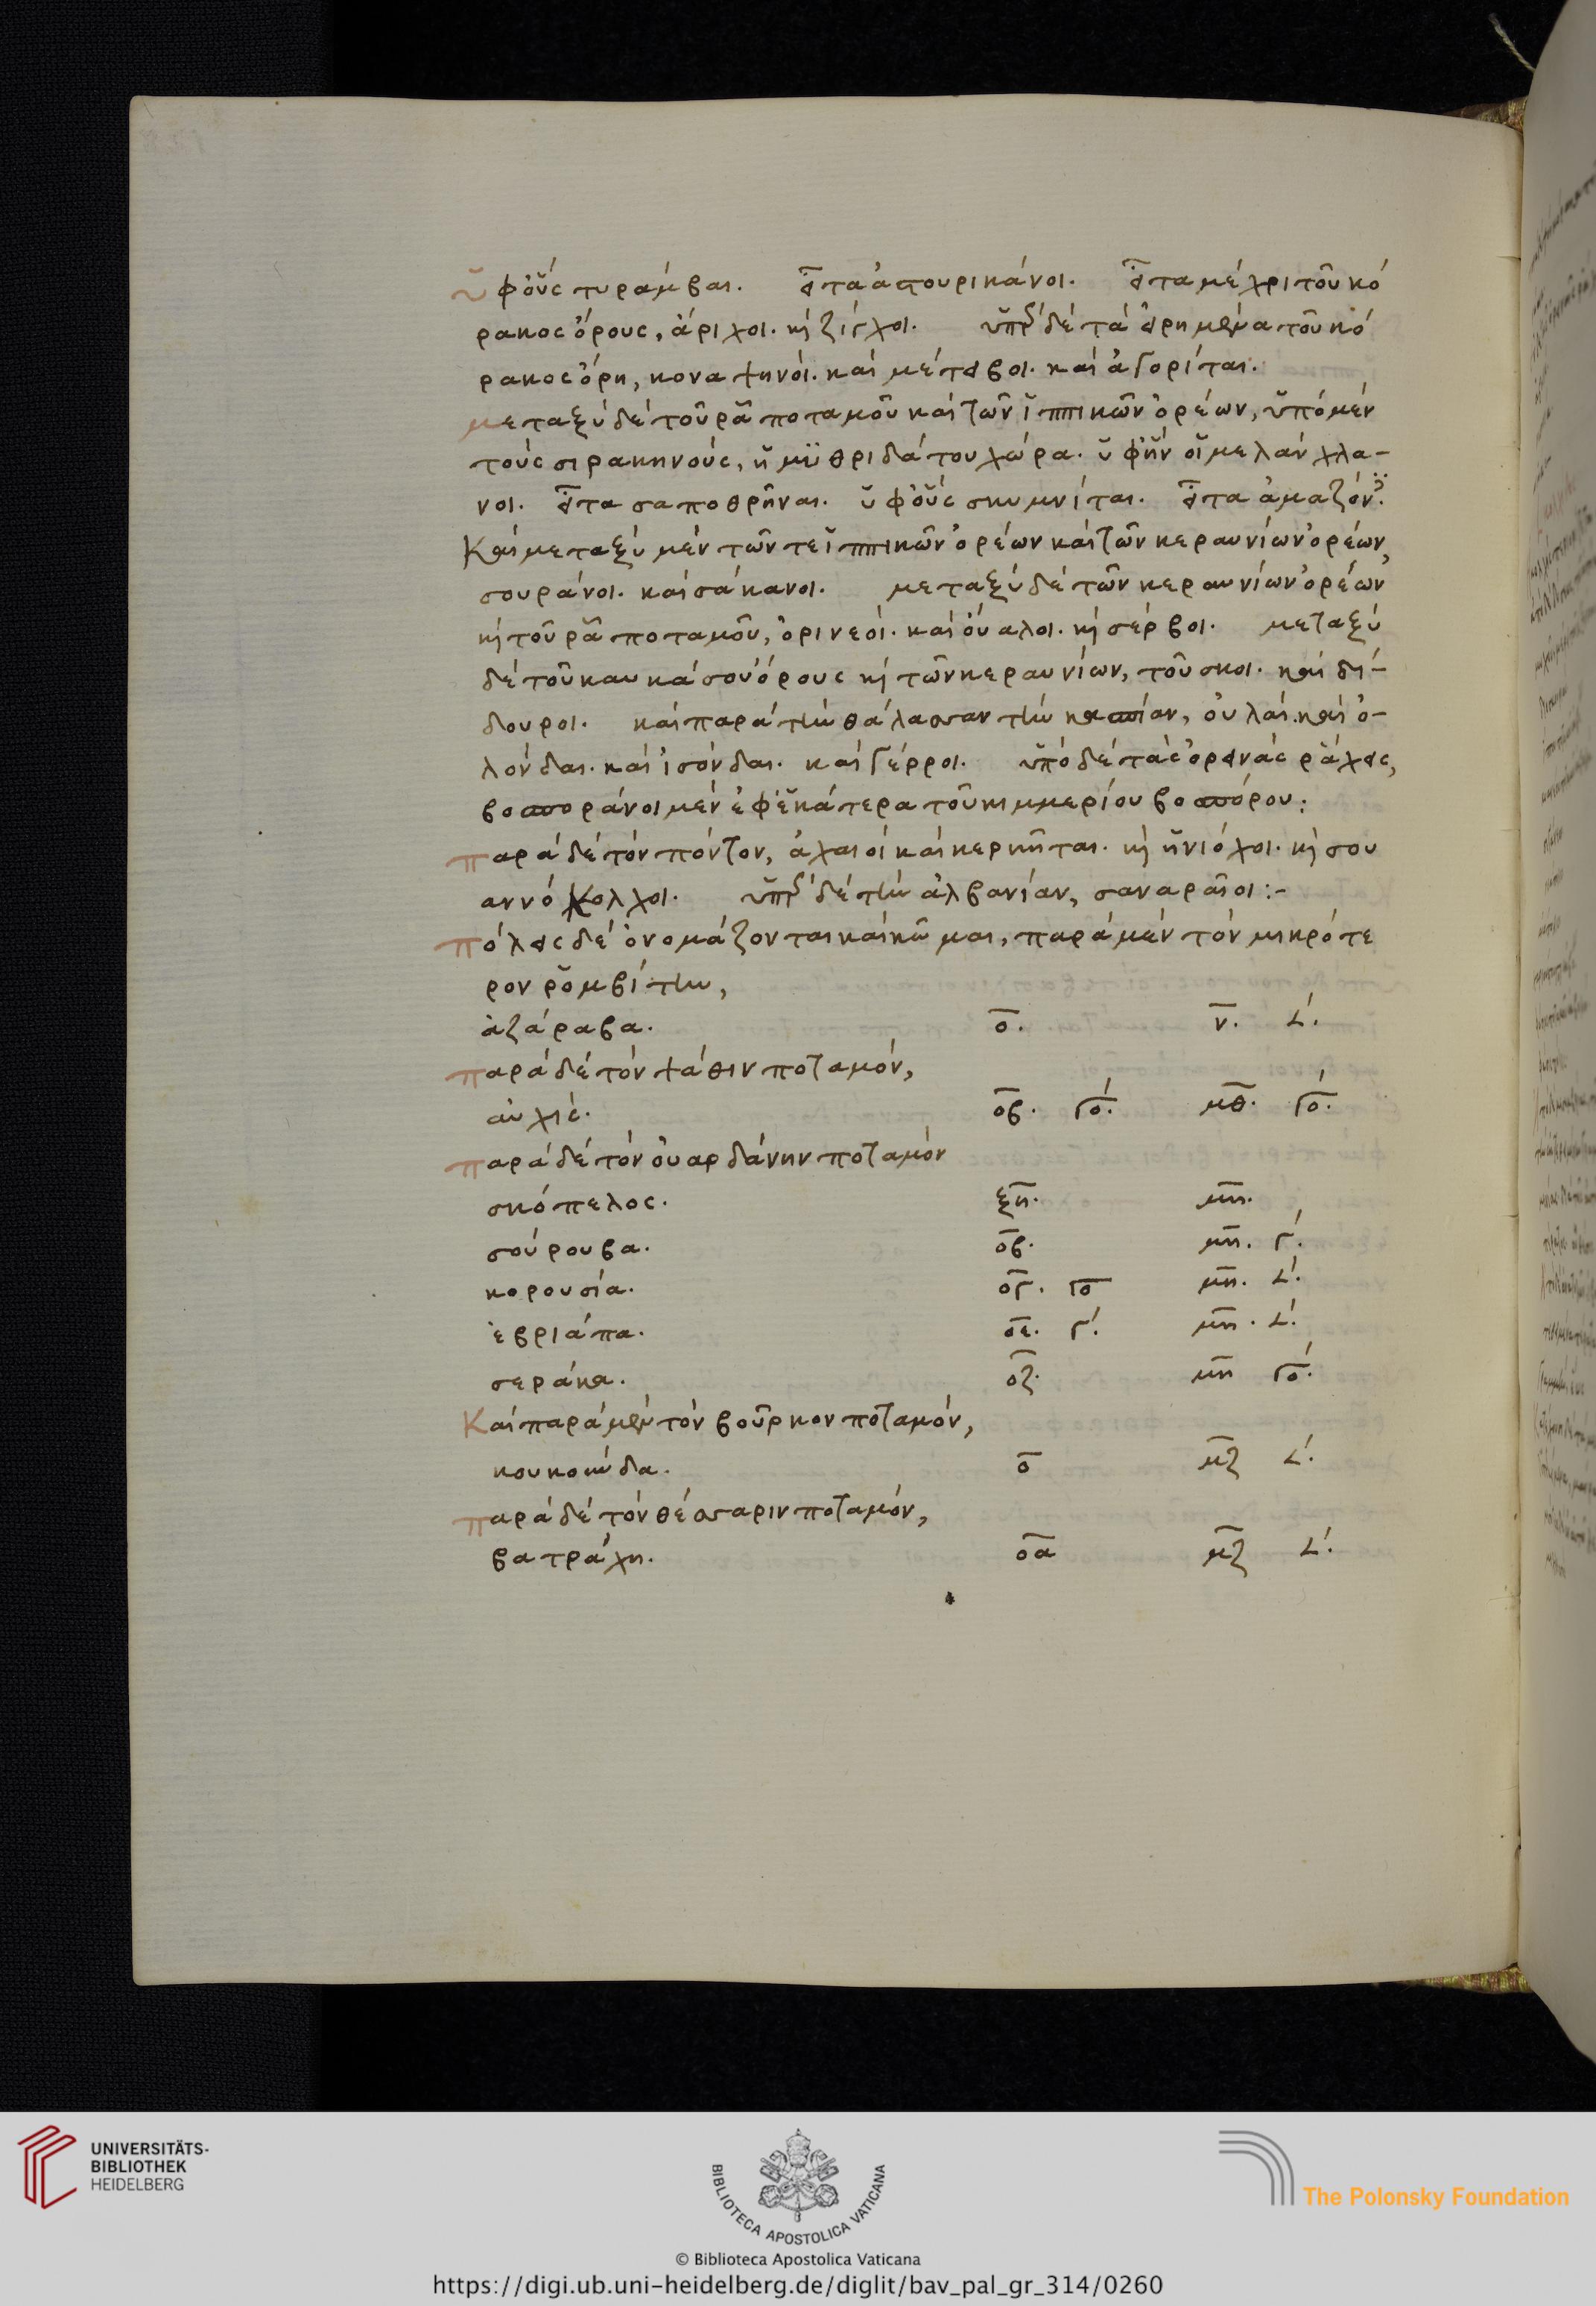 ὑφ' οὓς τυράμβαι. εἶτα ἀστουρικάνοι. εἶτα μέχρι τοῦ κό
ρακος ὄρους, ἄριχοι. κὶ ζίγχοι. ὑπὲρ δὲ τὰ εἰρημένα τοῦ κό
ρακος ὄρη, κοναψηνοί. καὶ μέτειβοι. καὶ ἀγορίται.
μεταξὺ δὲ τοῦ ρᾶ ποταμοῦ καὶ τῶν ἱππικῶν ὀρέων, ὑπὸ μὲν
τοὺς σιρακηνούς, ἡ μϊθριδάτου χώρα. ὑφ' ἣν οἱ μελάνχλα-
νοι. εἶτα σαποθρῆναι. ὑφ' οὓς σκυμνίται. εἶτα ἀμαζόν
Καὶ μεταξὺ μὲν τῶν τε ἱππικῶν ὀρέων καὶ τῶν κεραυνίων ὀρέων,
σουράνοι. καὶ σάκανοι. μεταξὺ δὲ τῶν κεραυνίων ὀρέων
κὶ τοῦ ρᾶ ποταμοῦ, ὀρινεοί. καὶ οὔαλοι. κὶ σέρβοι. μεταξὺ
δὲ τοῦ καυκάσου ὄρους κὶ τῶν κεραυνίων, τοῦσκοι. καὶ δί-
δουροι. καὶ παρὰ τὴν θάλασσαν τὴν κασπίαν, οὐλαί. καὶ ὀ-
λόνδαι. καὶ ἰσόνδαι. καὶ γέρροι. ὑπὸ δὲ τὰς ὀρεινὰς ῥάχεις,
βοσποράνοι μὲν ἐφ' ἑκάτερα τοῦ κιμμερίου βοσπόρου:
παρὰ δὲ τὸν πόντον, ἀχαιοὶ καὶ κερκῆται. κὶ ἡνιόχοι. κὶ σου
αννόκολχοι. ὑπὲρ δὲ τὴν ἀλβανίαν, σαναραῖοι:-
πόλεις δὲ ὀνομάζονται καὶ κῶμαι, παρὰ μὲν τὸν μικρότε
ρον ῥομβίτην,
ἀζάραβα. ο. ν. 𐅵.
παρὰ δὲ τὸν ψάθιν ποταμόν,
αὐχίς. οβ. γο. μθ. γο.
παρὰ δὲ τὸν οὐαρδάνην ποταμόν
σκόπελος. ξη. μη.
σούρουβα. οβ. μη. γ.
κορουσία. ογ. γο μη. 𐅵.
ἐβριάπα. οε. γ. μη. 𐅵.
σεράκα. οζ. μη γο.
Καὶ παρὰ μὲν τὸν βοῦρκον ποταμόν,
κουκούνδα. ο μζ 𐅵.
παρὰ δὲ τὸν θέσσαριν ποταμόν,
βατράχη. οα μζ 𐅵.
UNIVERSITÄTS-
BIBLIOTHEK
HEIDELBERG
BIBLIOTECA APOSTOLICA VATICANA
The Polonsky Foundation
© Biblioteca Apostolica Vaticana
https://digi.ub.uni-heidelberg.de/diglit/bav_pal_gr_314/0260